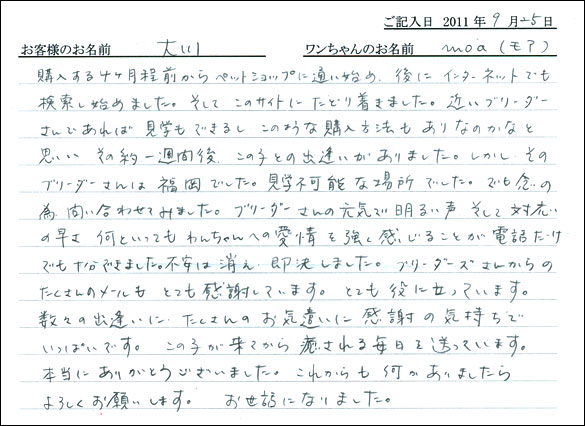 ご記入日 2011年9月25日
お客様のお名前 大川 ワンちゃんのお名前 moa(モア)
購入する4ヶ月程前からペットショップに通い始め、後にインターネットでも
検索し始めました。そしてこのサイトにたどり着きました。近いブリーダー
さんであれば見学もできるし このような購入方法もありなのかなと
思い その約一週間後、この子との出逢いがありました。しかし、その
ブリーダーさんは福岡でした。見学不可能な場所でした。でも念の
為 問い合わせてみました。ブリーダーさんの元気で明るい声 そして対応
の早さ 何といってもわんちゃんへの愛情を強く感じることが電話だけ
でも十分できました。不安は消え、即決しました。ブリーダーズさんからの
たくさんのメールも とても感謝しています。とても役に立っています。
数々の出逢いに、たくさんのお気遣いに感謝の気持ちで
いっぱいです。 この子が来てから癒される毎日を送っています。
本当にありがとうございました。これからも何かありましたら
よろしくお願いします。 お世話になりました。